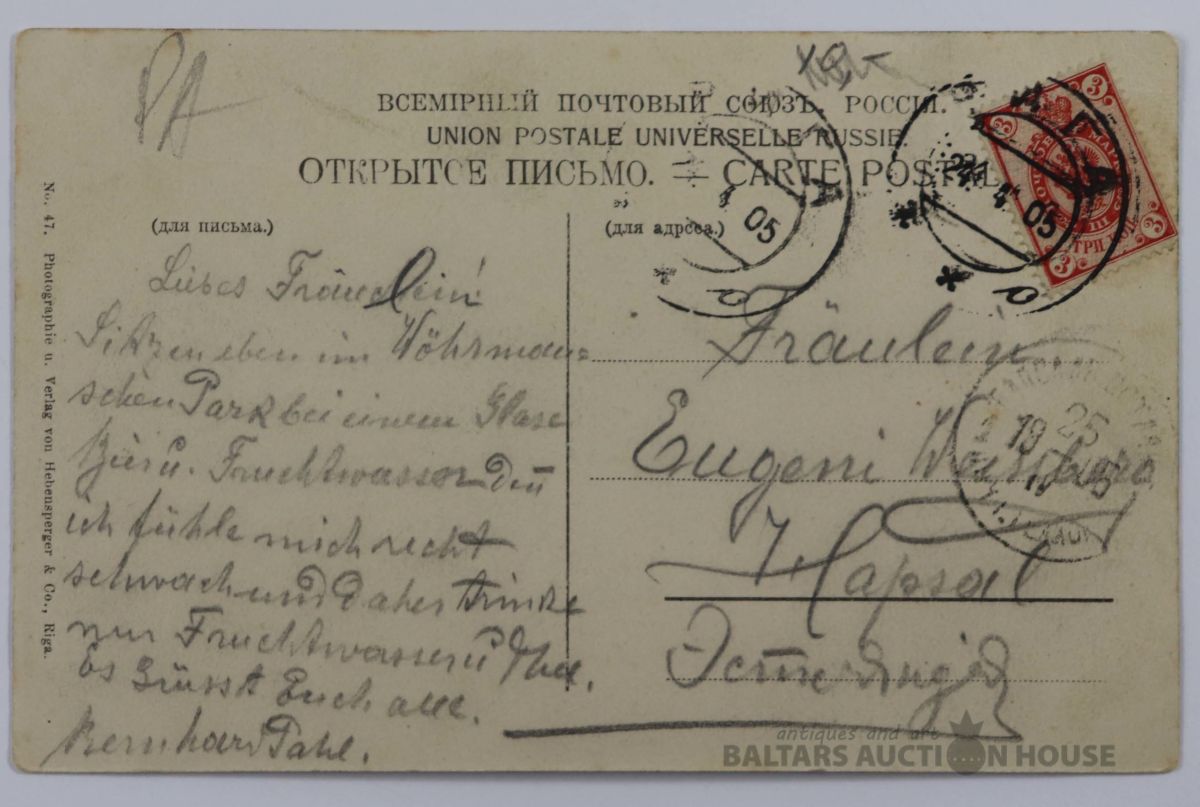 PA
ВСЕМІРНЫЙ ПОЧТОВЫЙ СОЮЗЪ. РОССІЯ.
UNION POSTALE UNIVERSELLE RUSSIE.
ОТКРЫТОЕ ПИСЬМО. — CARTE POSTALE
(для письма.)
Liebes Fräulein!
Sitzen eben im Wöhrman=
schen Park bei einem Glase
Bier u. Fruchtwasser den
ich fühle mich recht
schwach und daher trinke
nur Fruchtwasser u Thee.
Es Grüsst Euch alle.
Bernhard Pahl.
(для адреса.)
Fräulein
Eugeni
Hapsal
No. 47. Photographie u. Verlag von Hebensperger & Co., Riga.
РИГА
4 05
РИГА
4 05
3
3
3
3
ТРИ КОП.
25
19 05
antiques and art
BALTARS AUCTION HOUSE